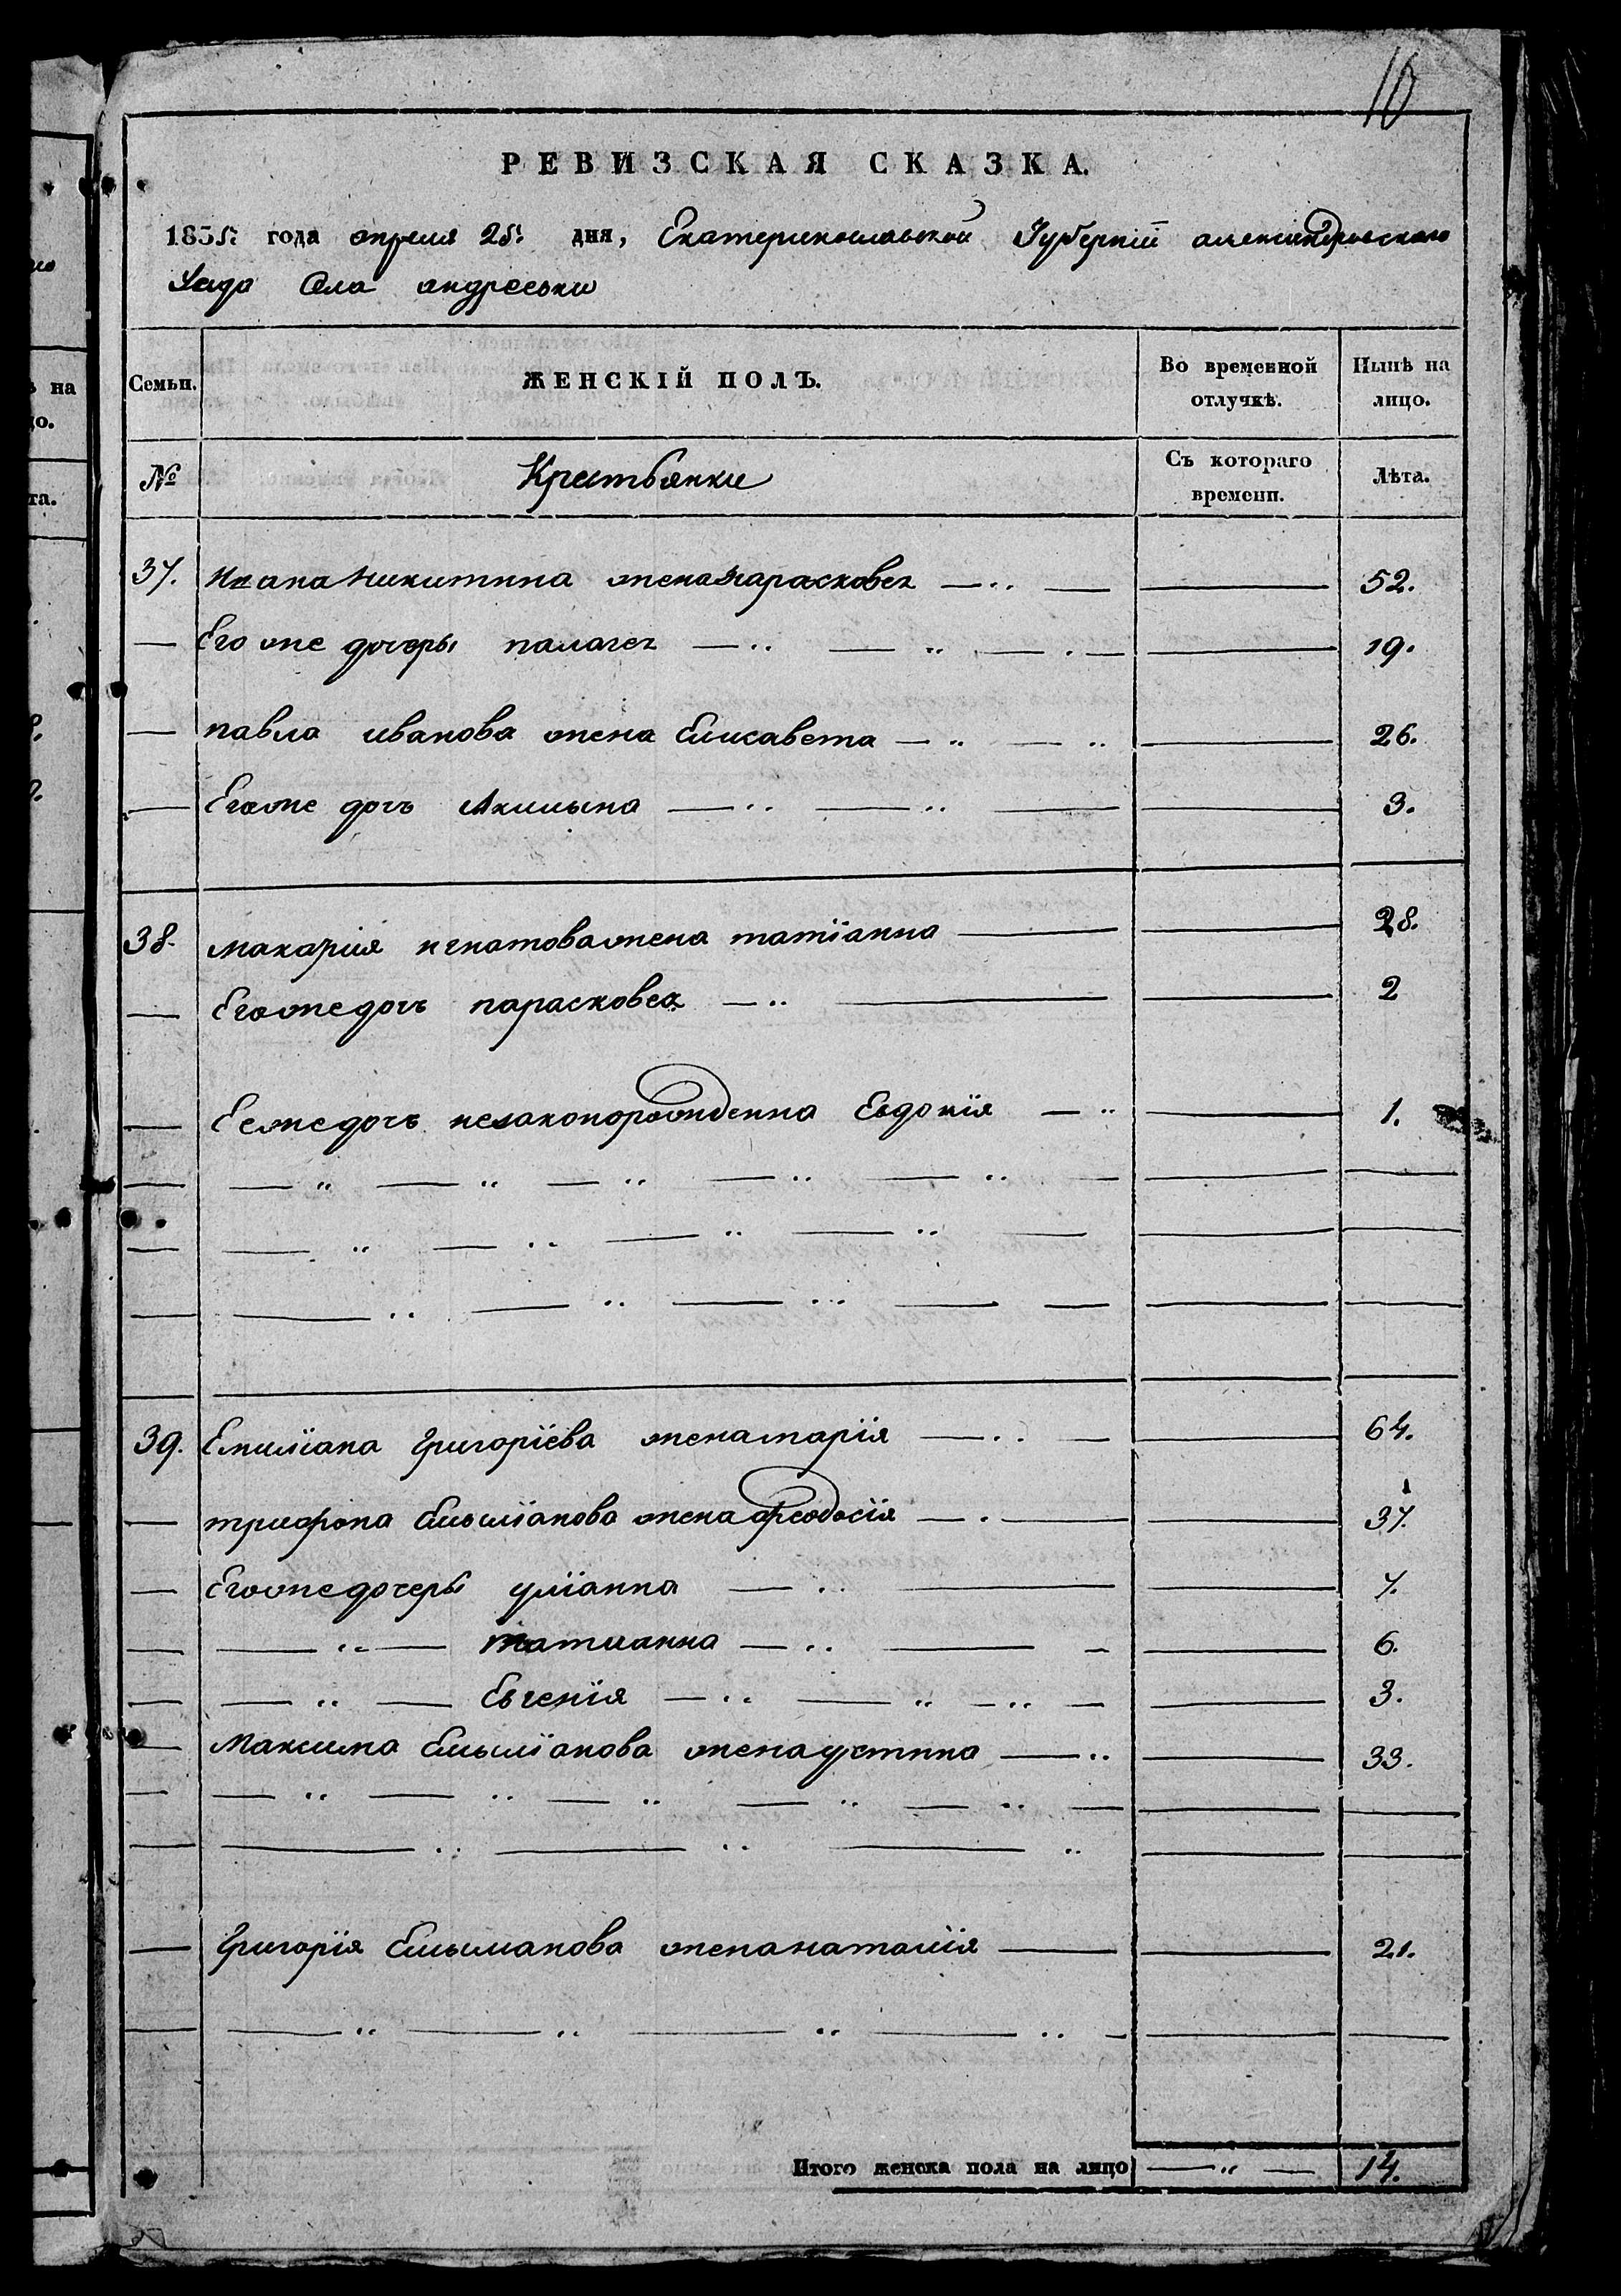 10
РЕВИЗСКАЯ СКАЗКА.
1835: года апреля 25: дня, Екатеринославской Губерніи александровского
Уезда Села андреевки
Семьи. ЖЕНСКІЙ ПОЛЪ. Во временной отлучкѣ. Нынѣ на лицо.
№ Крестьянки Съ котораго времени. Лѣта.
37. Ивана Никитина жена Парасковея 52.
Его же дочеры палагея 19.
павла иванова жена Елисавета 26.
Егоже дочь Акилына 3.
38. макария игнатова жена татіанна 28.
Егоже дочь парасковея 2
Ееже дочь незаконорожденна Евдокія 1.
39. Емиліана Григоріева жена марія 64.
трифона Емыліанова жена феодосія 37.
Егоже дочеры уліанна 7.
татианна 6.
Евгенія 3.
Максима Емыліанова жена устина 33.
Григорія Емылианова жена наталія 21.
Итого женска пола на лицо 14.